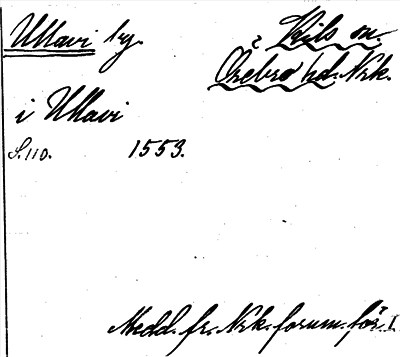 Ullavi by. i Kils sn.
Örebro hd. Nrk.
i Ullavi
S. 110. 1553.
Medd. fr. Nrk. fornm. för. I